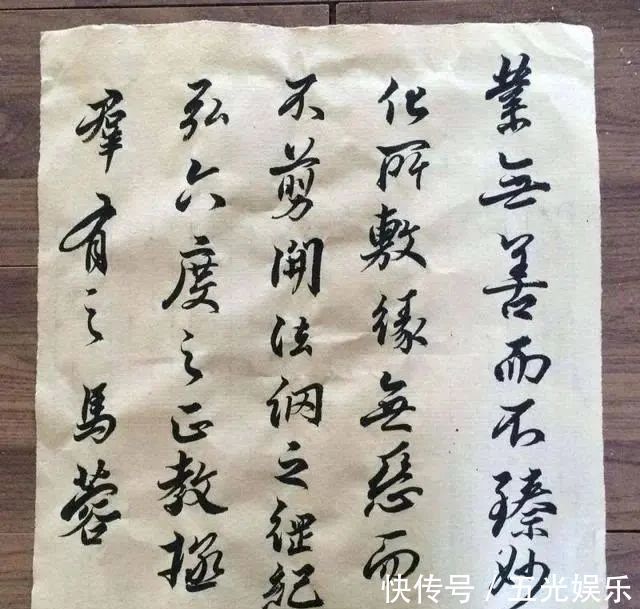 業無善而不臻妙
化所敷緣無惡而
不翦開法網之綱紀
弘六度之正教拯
羣有之馬蓉
快传号/五光娱乐